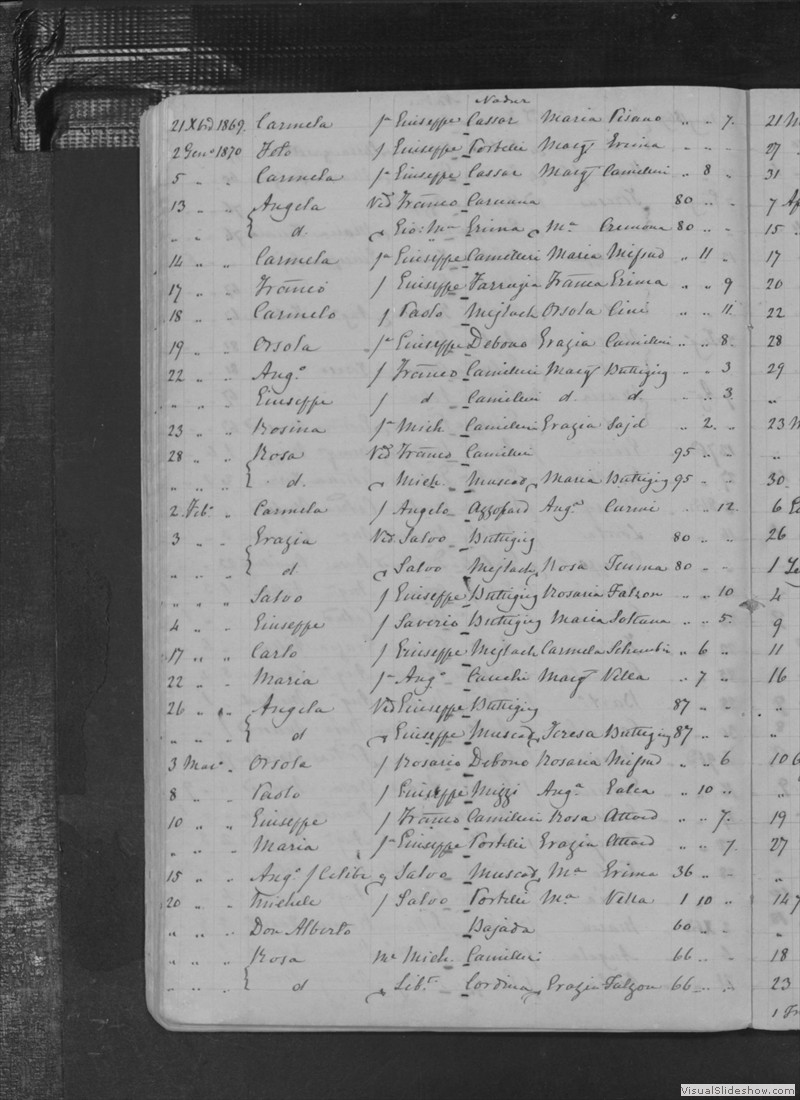 Nadur
21 Xbre 1869. Carmela f Giuseppe Cassar Maria Pisano " " 7.
2 Geno 1870 f Giuseppe Portelli Marga Grima - - -
5 " " Carmela f Giuseppe Cassar Marga Camilleri " 8 "
13 " " Angela Vid Franco Caruana 80 " -
" " { d. Gio: Ma Grima Ma Cremona 80 " -
14 " " Carmela f Giuseppe Camilleri Maria Mifsud " 11 "
17 " " Franco f Giuseppe Farrugia Franca Grima " " 9
18 " " Carmelo f Paolo Mejlach Orsola " " 11
19 " " Orsola f Giuseppe Debono Grazia Camilleri " " 8.
22 " " Ango f Franco Camilleri Marga Buttigieg " - 3
" " " Giuseppe f d Camilleri d. d. " " 3.
23 " " Rosina f Mich. Camilleri Grazia Sajd " 2. "
28 " " Rosa Vid Franco Camilleri 95 " -
" " " { d. Mich. Muscat Maria Buttigieg 95 " "
2 Feb. " Carmela f Angelo Azzopard Anga Curmi " " 12.
3 " " Grazia Vid Salvo Buttigieg 80 " "
" " " { d Salvo Mejlach Rosa 80 - -
" " " Salvo f Giuseppe Buttigieg Rosaria Falzon " " 10
4 " " Giuseppe f Saverio Buttigieg Maria Sultana " " 5.
17 " " Carlo f Giuseppe Mejlach Carmela Schembri " 6 "
22 " " Maria f Ango Cauchi Marga Vella " 7 "
26 " " Angela Vid Giuseppe Buttigieg 87 " "
" " " { d Giuseppe Muscat Teresa Buttigieg 87 " "
3 Mar. " Orsola f Rosario Debono Rosaria Mifsud " " 6
8 " " Paolo f Giuseppe Mizzi Anga Galea " 10 "
10 " " Giuseppe f Franco Camilleri Rosa Attard " " 7.
" " " Maria f Giuseppe Portelli Grazia Attard " " 7.
15 " " Ango f Celibe Salvo Muscat Ma Grima 36 " "
20 " " Michele f Salvo Portelli Ma Vella 1 10 "
" " " Don Alberto Bajada 60 " "
" " " Rosa Me Mich. Camilleri 66 " "
" " " { d Cordina Grazia Falzon 66 " "
21
27
31
7
15
17
20
22
28
29
"
23
"
30
6
26
1
4
9
11
16
"
"
10
"
19
27
"
14
"
18
23
1
VisualSlideshow.com